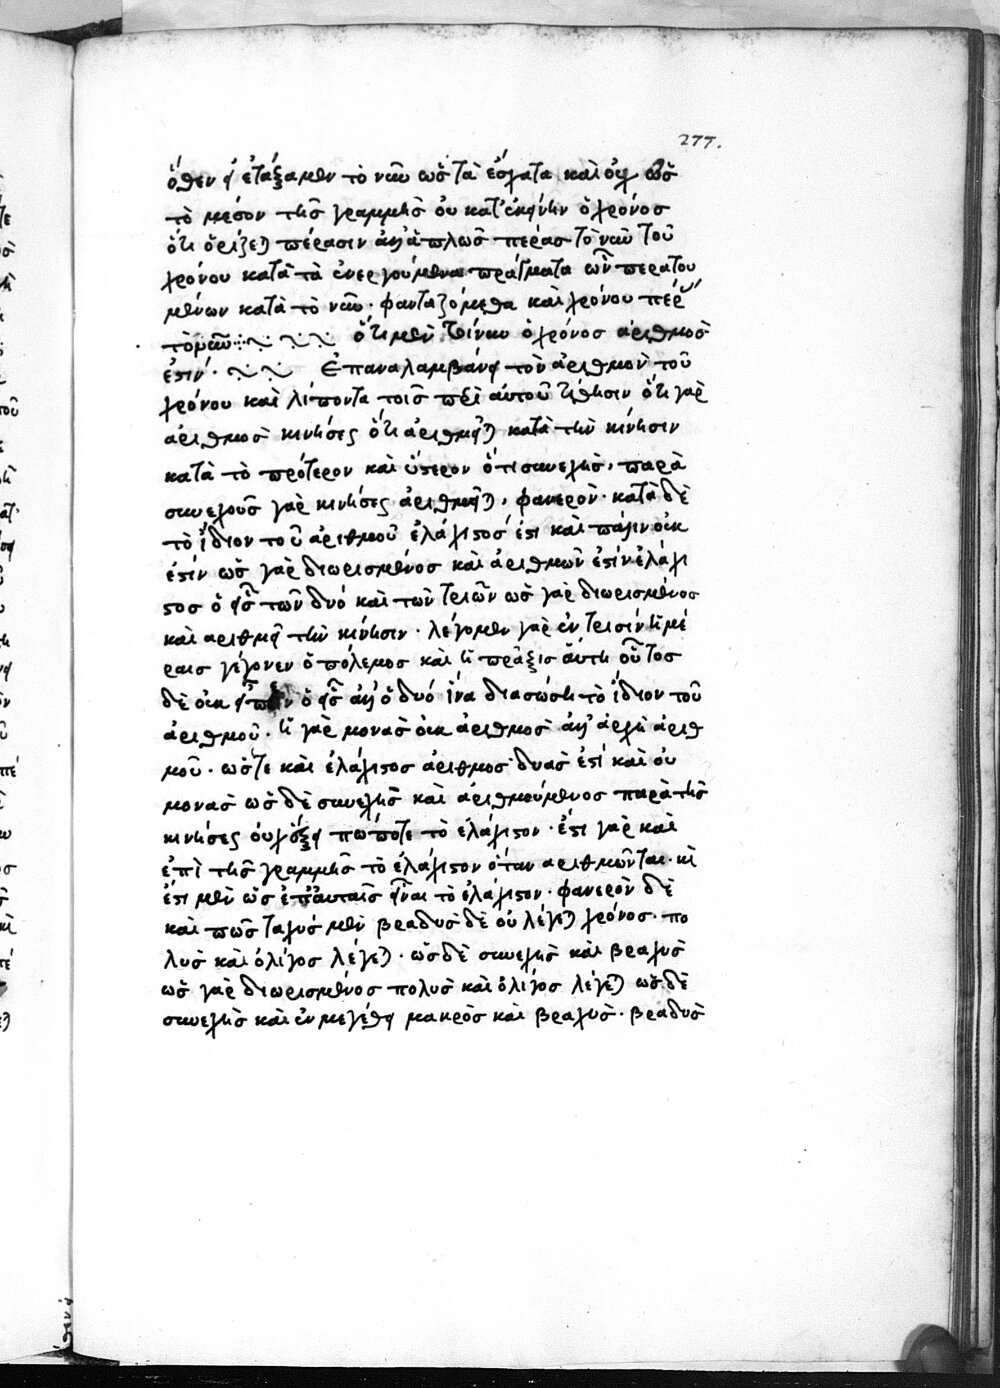 277.
ὅθεν εἰ ἐτάξαμεν τὸ νῦν ὡς τὰ ἔσχατα καὶ οὐχ ὡς
τὸ μέσον τῆς γραμμῆς οὐ κατ' ἐκείνην ὁ χρόνος
ὅτι ὁρίζεται πέρασιν ἀλλ' ἁπλῶς πέρας τὸ νῦν τοῦ
χρόνου κατὰ τὰ ἐνεργούμενα πράγματα ὧν περατου
μένων κατὰ τὸ νῦν· φανταζόμεθα καὶ χρόνου πέρας
τὸ νῦν ὅτι μὲν τοίνυν ὁ χρόνος ἀριθμὸς
ἐστίν· Ἐπαναλαμβάνει τὸν ἀριθμὸν τοῦ
χρόνου καὶ λίποντα τοῖς περὶ αὐτοῦ τίθησιν ὅτι γὰρ
ἀριθμὸς κινήσεως ὅτι ἀριθμεῖται κατὰ τὴν κίνησιν
κατὰ τὸ πρότερον καὶ ὕστερον ὅτι συνεχὴς, παρὰ
συνεχοῦς γὰρ κινήσεως ἀριθμεῖται, φανερόν· κατὰ δὲ
τὸ ἴδιον τοῦ ἀριθμοῦ ἐλάχιστός ἐστι καὶ πάλιν οὐκ
ἐστίν ὡς γὰρ διωρισμένος καὶ ἀριθμῶν ἐστὶν ἐλάχι
στος ὁ εἷς τῶν δύο καὶ τῶν τριῶν ὡς γὰρ διωρισμένος
καὶ ἀριθμεῖ τὴν κίνησιν· λέγομεν γὰρ ἐν τρισὶν ἡμέ
ραις γέγονεν ὁ πόλεμος καὶ ἡ πρᾶξις αὕτη οὗτος
δὲ οὐκ εἶπεν ὁ εἷς ἀλλ' ὁ δύο ἵνα διασώση τὸ ἴδιον τοῦ
ἀριθμοῦ· ἡ γὰρ μονὰς οὐκ ἀριθμὸς ἀλλ' ἀρχὴ ἀριθ
μοῦ· ὥστε καὶ ἐλάχιστος ἀριθμὸς δυὰς ἐστὶ καὶ οὐ
μονὰς ὡς δὲ συνεχὴς καὶ ἀριθμούμενος παρὰ τῆς
κινήσεως οὐχ ἕξει πώποτε τὸ ἐλάχιστον· ἐστι γὰρ καὶ
ἐπὶ τῆς γραμμῆς τὸ ἐλάχιστον ὅταν ἀριθμῶνται· καὶ
ἔστι μὲν ὡς ἐπ' αὐταῖς εἶναι τὸ ἐλάχιστον· φανερὸν δὲ
καὶ πῶς ταχὺς μὲν βραδὺς δὲ οὐ λέγεται χρόνος· πο
λὺς καὶ ὀλίγος λέγεται· ὡς δὲ συνεχὴς καὶ βραχὺς
ὡς γὰρ διωρισμένος πολὺς καὶ ὀλίγος λέγεται ὡς δὲ
συνεχὴς καὶ ἐν μεγέθει μακρὸς καὶ βραχὺς· βραδὺς